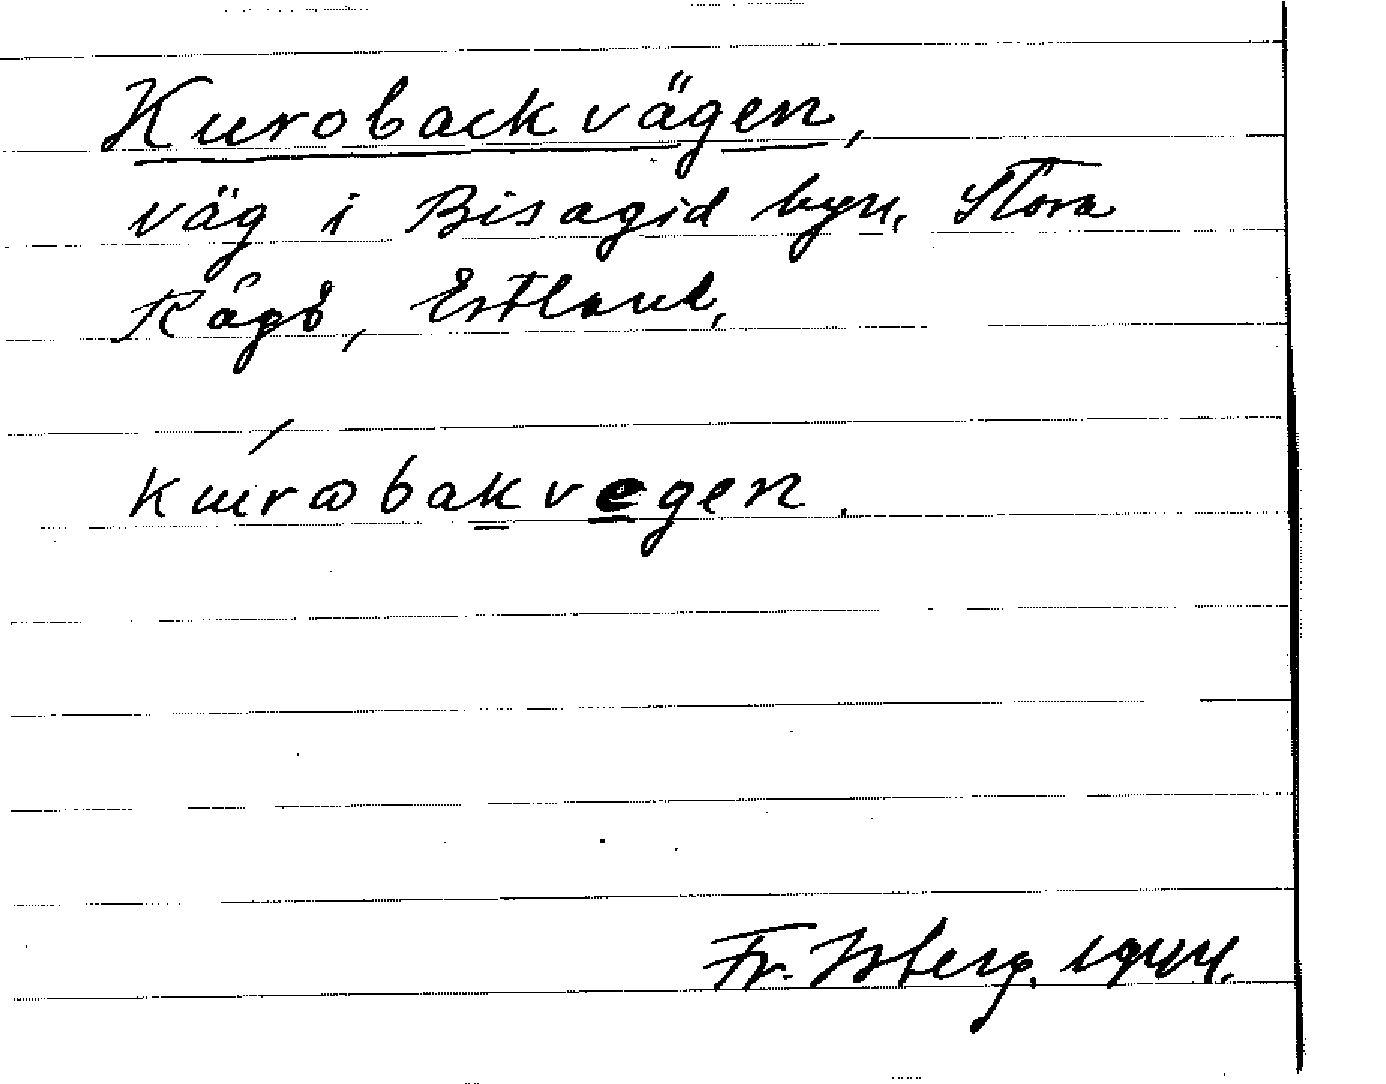 Kurobackvägen,
väg i Bisagid byn, Stora
Rågö, Estland,
kɯrɷbakvegen.
Fr. Isberg. 1944.